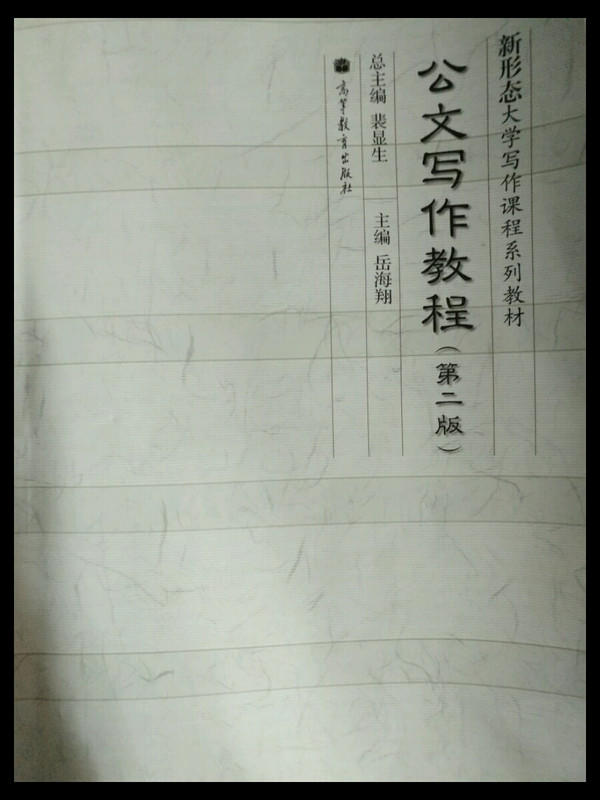 新形态大学写作课程系列教材
公文写作教程（第二版）
总主编 裴显生
主编 岳海翔
高等教育出版社